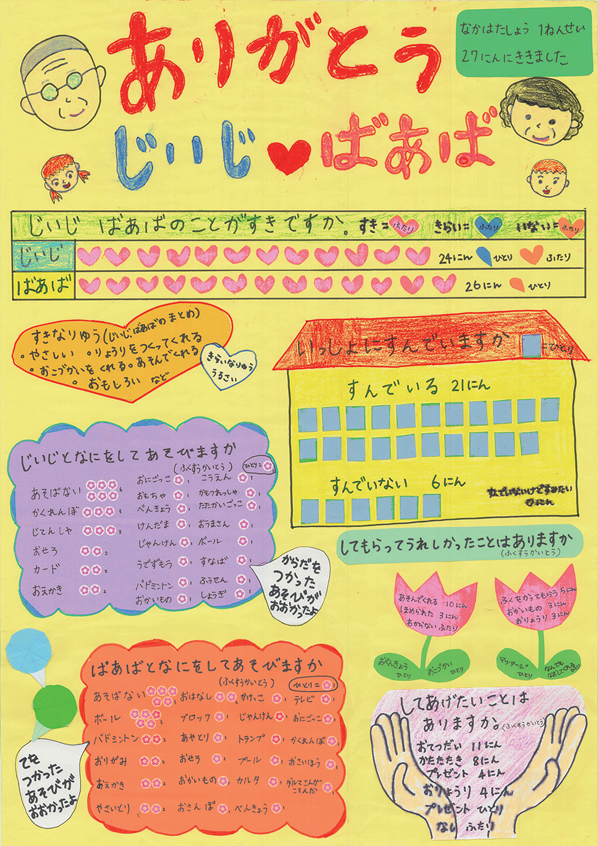 ありがとう
なかはたしょう 1ねんせい
27にんにききました
じいじ ばあば
じいじ ばあばのことがすきですか。 すき= ふたり きらい= ふたり いない= ふたり
じいじ 24にん ひとり ふたり
ばあば 26にん ひとり
すきなりゆう(じいじ、ばあばのまとめ)
・やさしい ・りょうりをつくってくれる
・おこづかいをくれる・あそんでくれる
・おもしろい など
きらいなりゆう
うるさい
いっしょにすんでいますか =ひとり
すんでいる 21にん
すんでいない 6にん
すんでいないけどすみたい
0にん
じいじとなにをしてあそびますか
(ふくすうかいとう) ひとり=
あそばない 6 おにごっこ 2 こうえん 1
かくれんぼ おもちゃ 2 かもつれっしゃ 1
じてんしゃ べんきょう 2 たたかいごっこ 1
けんだま 2 おうまさん 1
おせろ 2 じゃんけん ボール 1
カード 2 うでずもう 1 すなば 1
おえかき 2 バドミントン 1 ふうせん 1
おかいもの 1 しょうぎ 1
からだを
つかった
あそびが
おおかったよ
してもらってうれしかったことはありますか
(ふくすうかいとう)
あそんでくれる 10にん
ほめられた 3にん
わからない ふたり
ふくをかってもらう 5にん
おかいもの 3にん
おりょうり 3にん
おべんきょう ひとり
おこづかい ひとり
マッサージ ひとり
ばあばとなにをしてあそびますか
(ふくすうかいとう) ひとり=
あそばない おはなし 2 かけっこ 1 テレビ 1
ボール ブロック じゃんけん おにごっこ
バドミントン あやとり トランプ かくれんぼ
おりがみ おせろ プール おさいほう
おえかき おかいもの カルタ
やさいとり おさんぽ べんきょう
てを
つかった
あそびが
おおかったよ
してあげたいことは
ありますか。(ふくすうかいとう)
おてつだい 11にん
かたたたき 8にん
プレゼント 4にん
おりょうり 4にん
プレゼント ひとり
なし ふたり